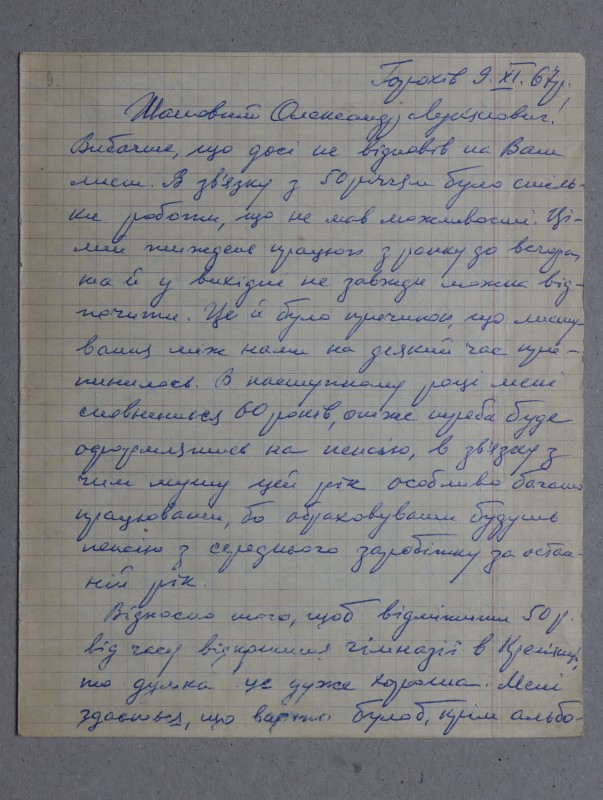 9.
Горохів 9. XI. 67р.
Шановний Олександр Лукʼянович!
Вибачте, що досі не відповів на Ваш
лист. В звʼязку з 50 річчям було стіль-
ки роботи, що не мав можливості. Ці-
лий тиждень працюю з ранку до вечора,
та й у вихідні не завжди можна від-
почити. Це й було причиною, що листу-
вання між нами на деякий час при-
пинилось. В наступному році мені
сповниться 60 років, отже треба буде
оформлятись на пенсію, в звʼязку з
чим мушу цей рік особливо багато
працювати, бо обраховувати будуть
пенсію з середнього заробітку за остан-
ній рік.
Відносно того, щоб відмітити 50 р.
від часу відкриття гімназії в
то думка це дуже хороша. Мені
здається, що варто булоб, крім альбо-